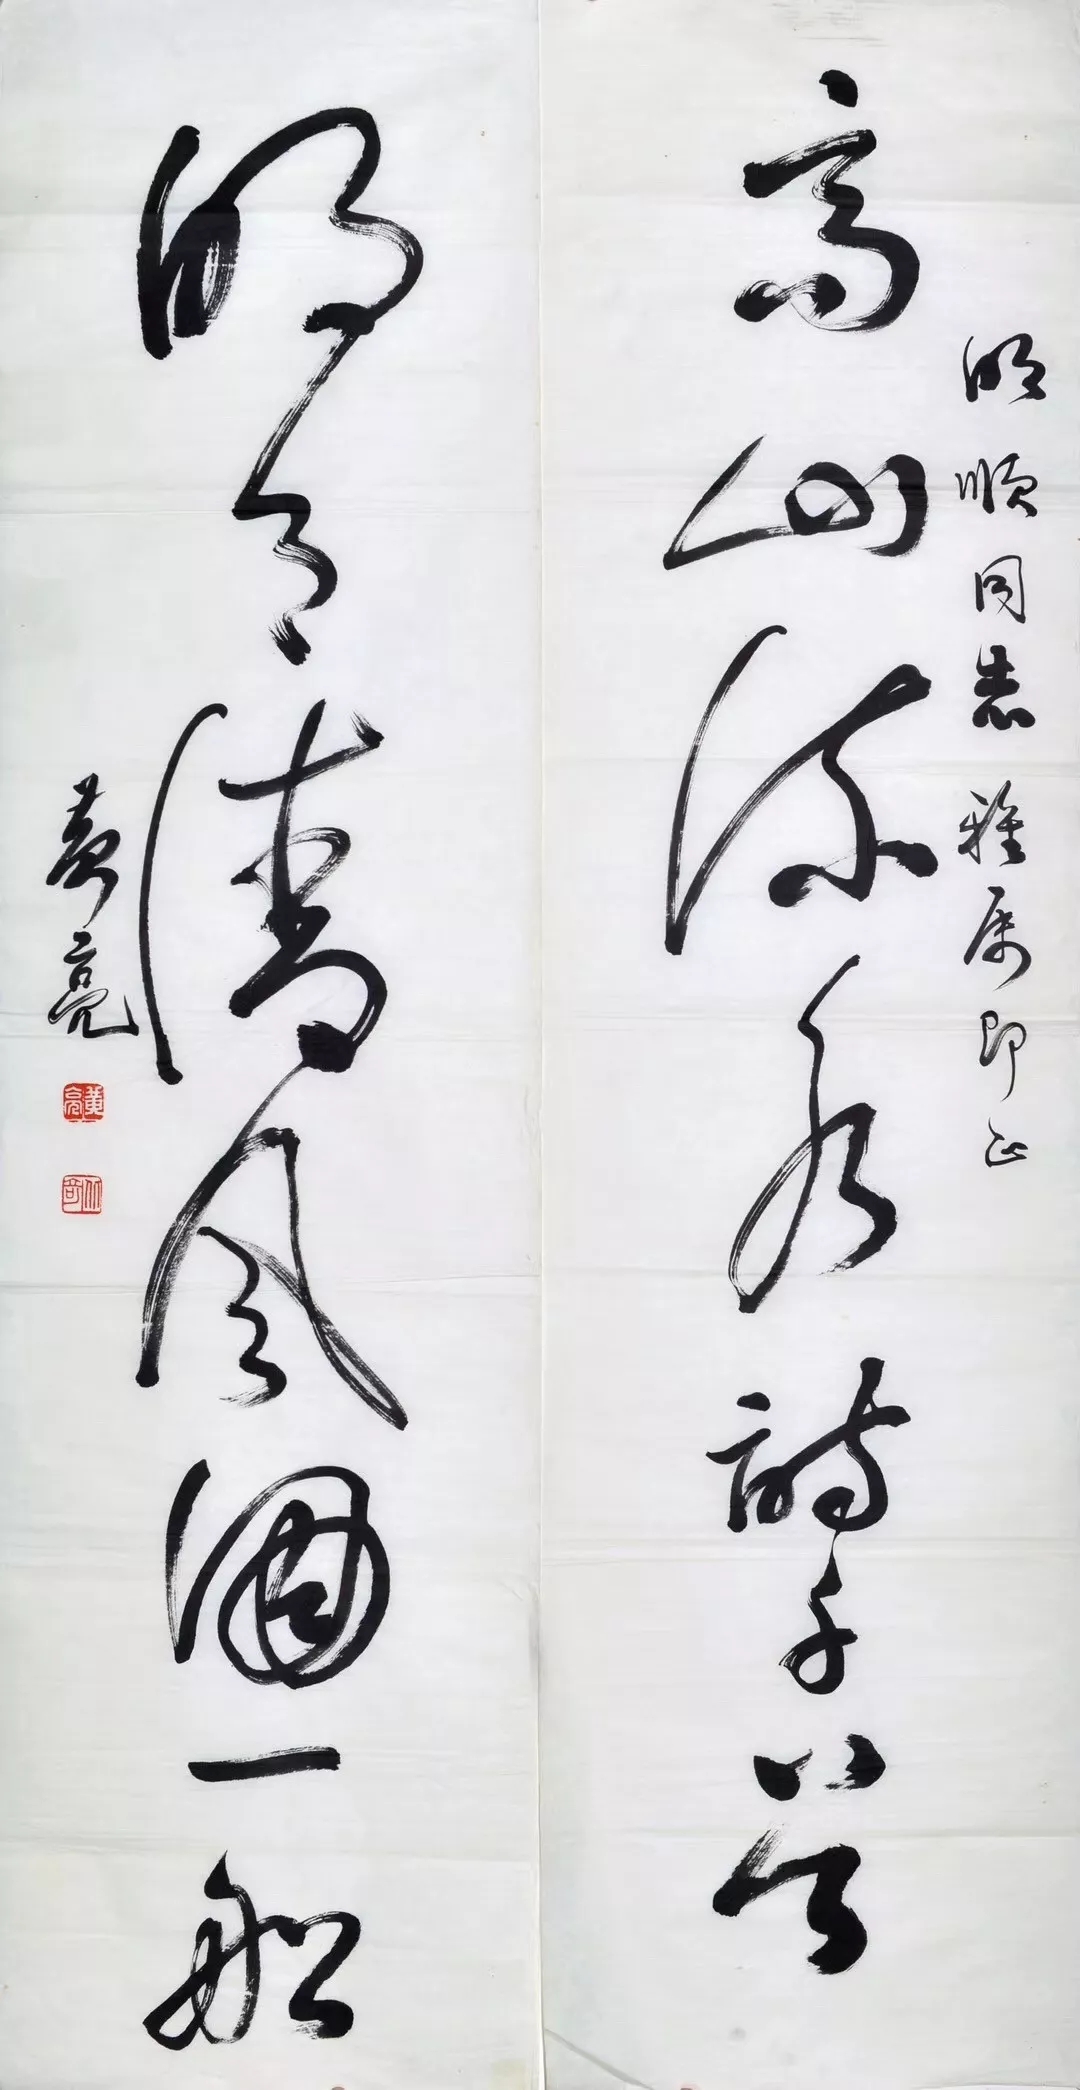 明順同志雅属即正
高山流水詩千首
明月清風酒一船
黄亮
黄亮